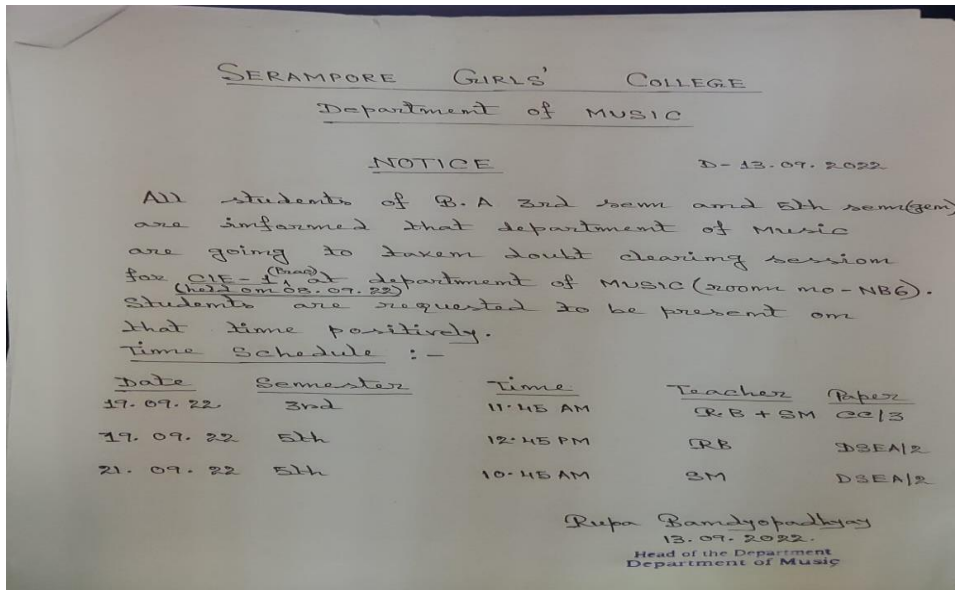 SERAMPORE GIRLS' COLLEGE
Department of MUSIC
NOTICE D- 13.09.2022
All students of B.A 3rd sem and 5th sem(gen)
are informed that department of Music
are going to taken doubt clearing session
for CIE-1 (Prac) at department of MUSIC (room no - NB6).
(held on 08.09.22)
Students are requested to be present on
that time positively.
Time Schedule :-
Date Semester Time Teacher Paper
19.09.22 3rd 11.45 AM R.B + SM CC/3
19.09.22 5th 12.45 PM RB DSEA/2
21.09.22 5th 10.45 AM SM DSEA/2
Rupa Bandyopadhyay
13.09.2022.
Head of the Department
Department of Music